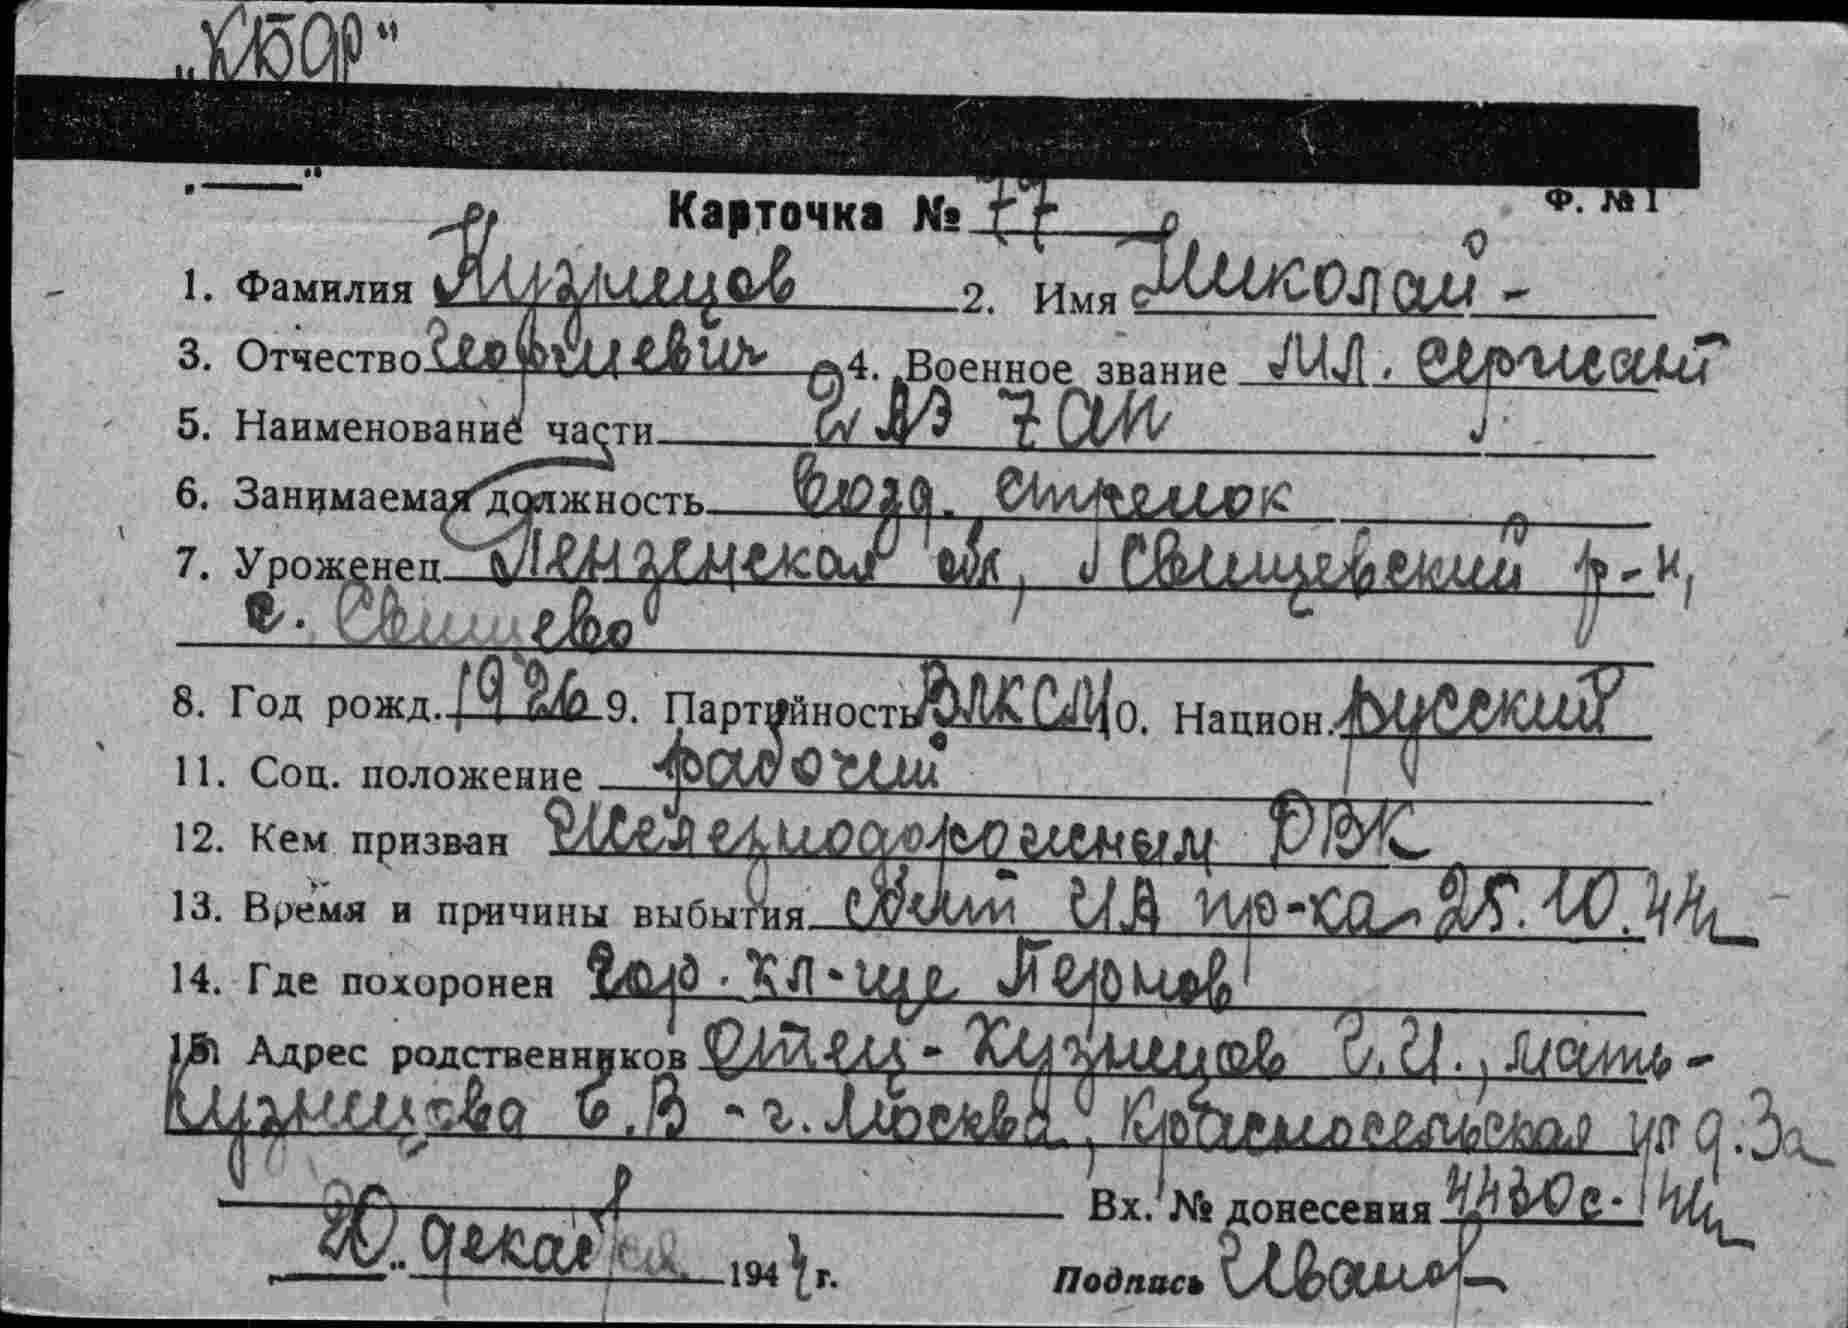 „КБФ“
Карточка № 77
Ф. № 1
1. Фамилия Кузнецов 2. Имя Николай -
3. Отчество Георгиевич 4. Военное звание мл. сержант
5. Наименование части 2 АЭ 7 ап
6. Занимаемая должность возд. стрелок
7. Уроженец Пензенская обл, Свищевский р-н,
с. Свищево
8. Год рожд. 1926 9. Партийность ВЛКСМ 10. Национ. русский
11. Соц. положение рабочий
12. Кем призван Железнодорожным РВК
13. Время и причины выбытия сбит ИА пр-ка 25.10.44г
14. Где похоронен гор. кл-ще Пернов
15. Адрес родственников отец - Кузнецов Г.И., мать -
Кузнецова Е.В - г. Москва, Красносельская ул д. 3а
Вх. № донесения 4430с. 44г
20 декабря 1944 г. Подпись Иванов